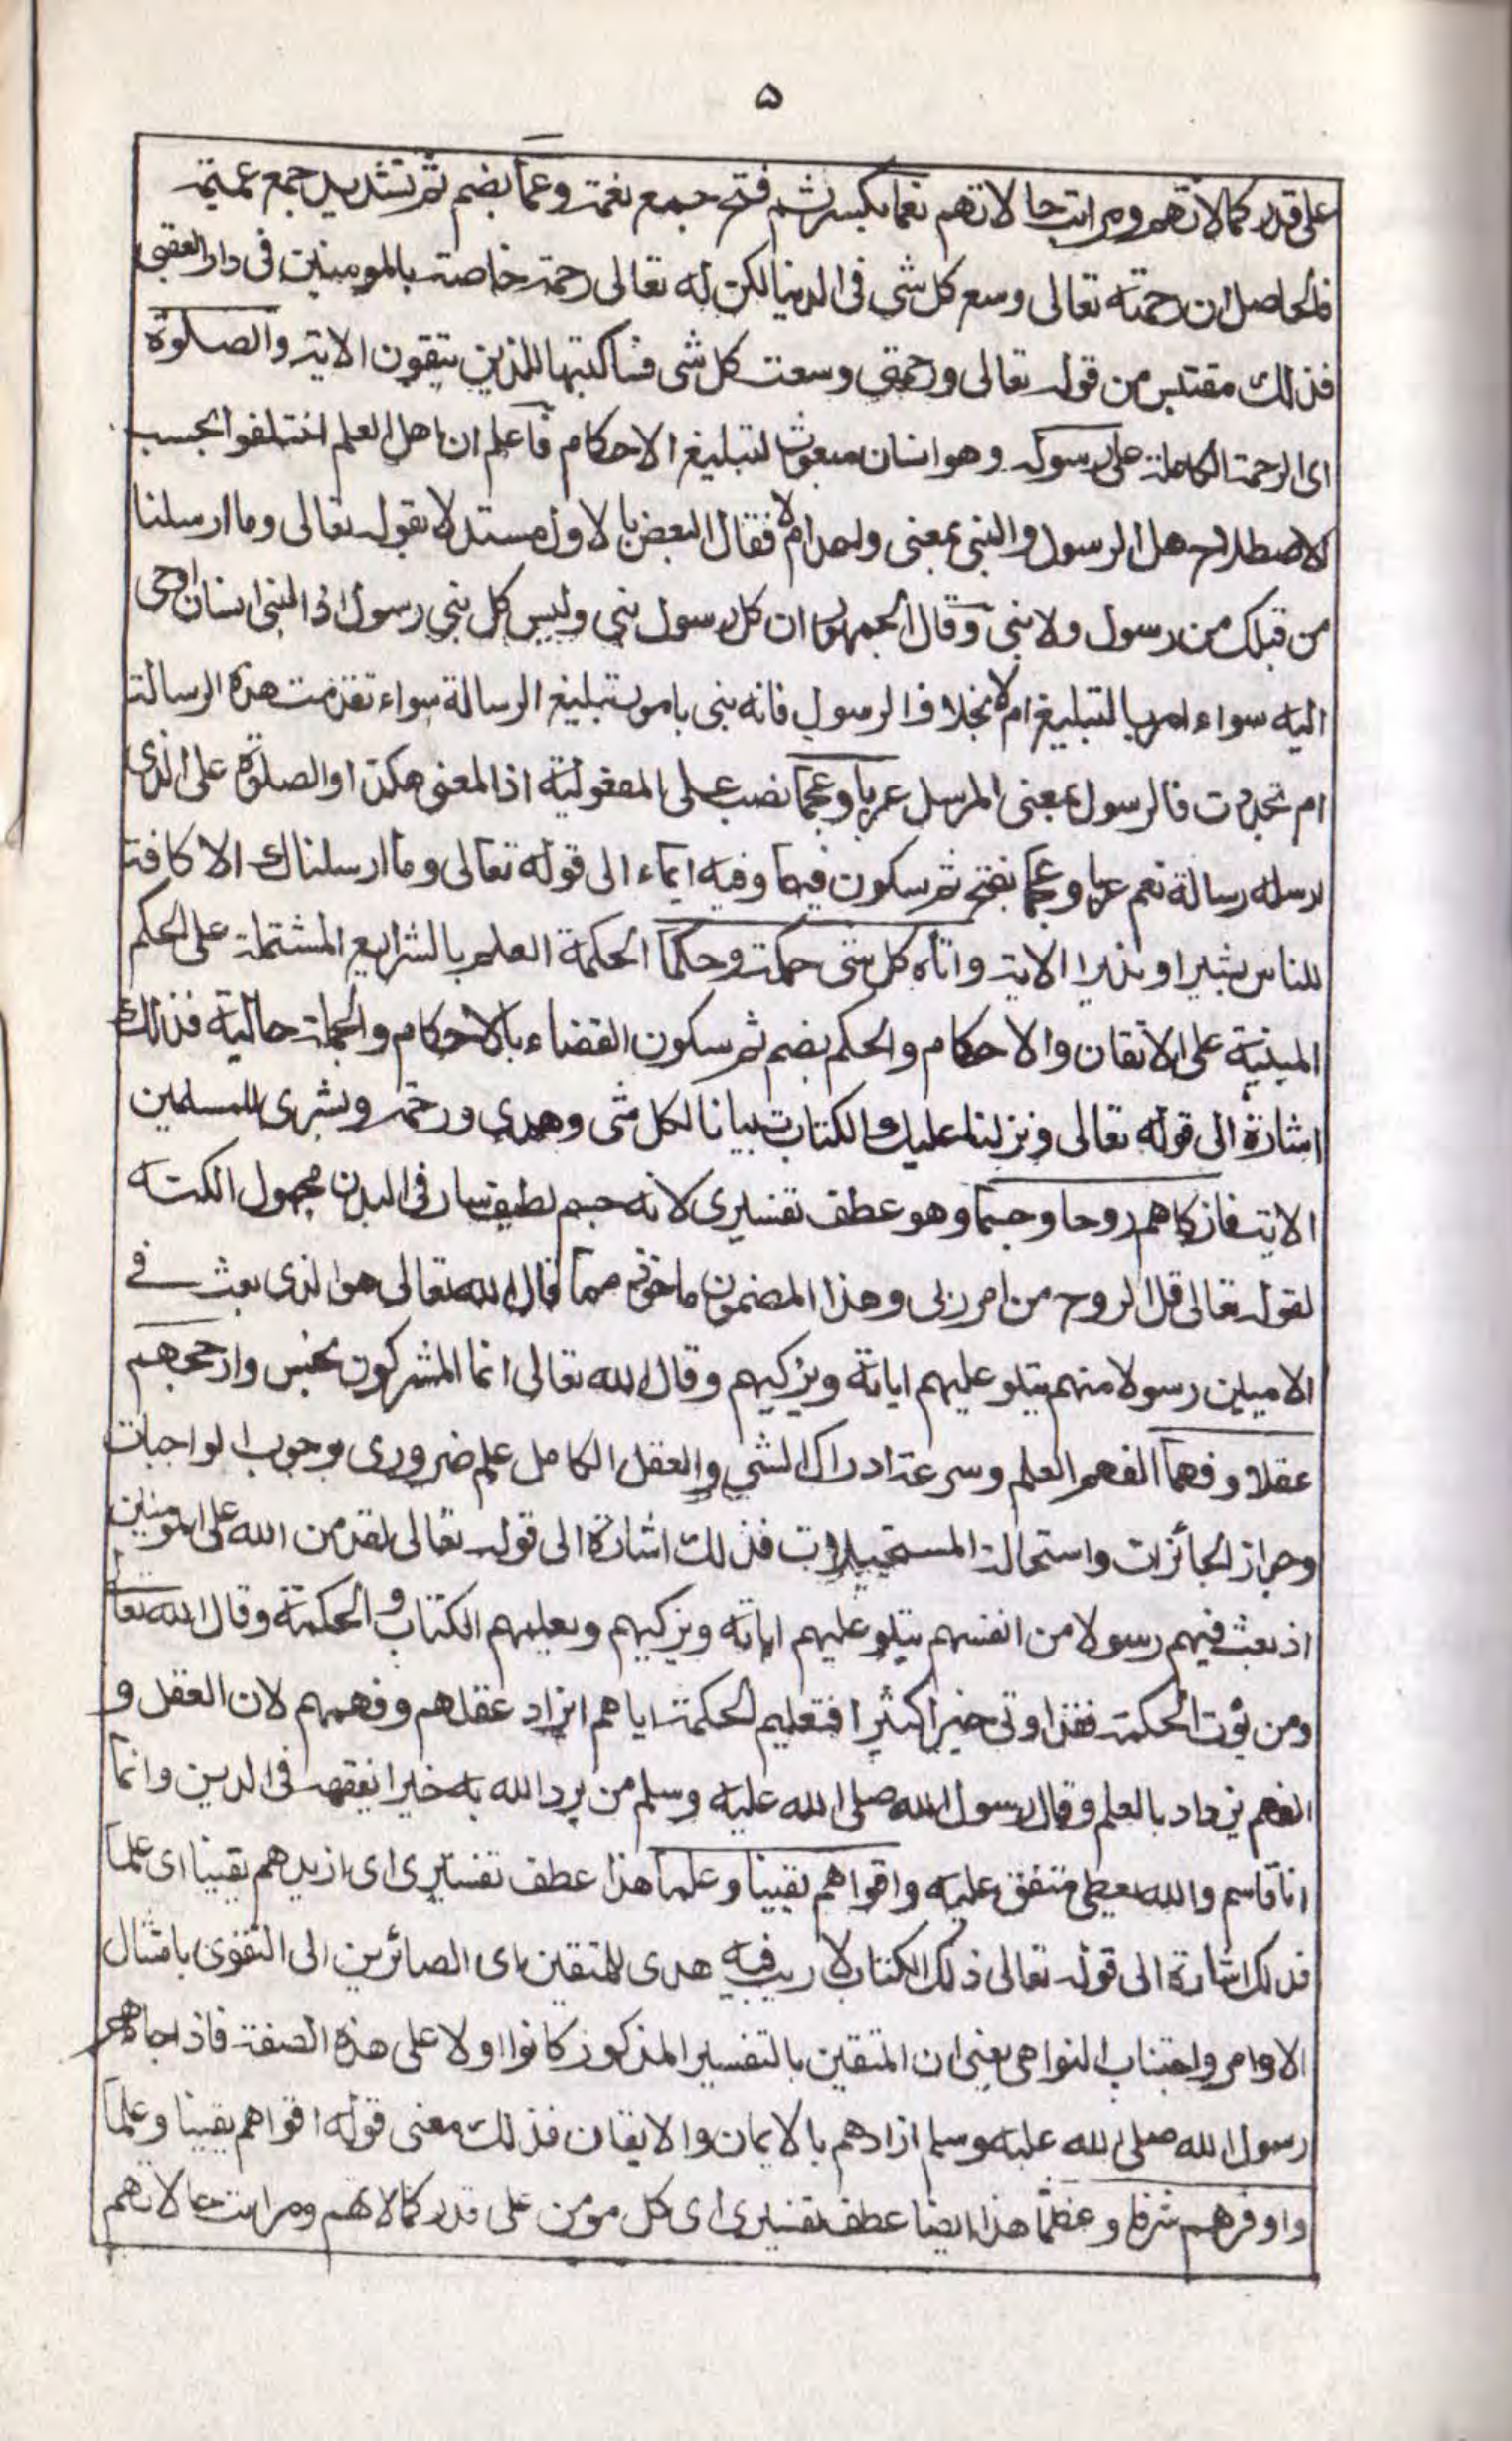 ۵
على قدر كمالاتهم ومراتب حالاتهم نعما بكسر ثم فتح جمع نعمة وعما بضم ثم تشديد جمع عميمة
فالحاصل ان رحمته تعالى وسع كل شى فى الدنيا لكن له تعالى رحمة خاصة بالمومنين فى دار العقبى
فذلك مقتبس من قوله تعالى ورحمتى وسعت كل شى فساكتبها للذين يتقون الاية والصلوة
اى الرحمة الكاملة على رسوله وهو انسان مبعوث لتبليغ الاحكام فاعلم ان اهل العلم اختلفوا بحسب
الاصطلاح هل الرسول والنبى بمعنى واحد ام لا فقال البعض بالاول مستدلا بقوله تعالى وما ارسلنا
من قبلك من رسول ولا نبى وقال الجمهور ان كل رسول نبى وليس كل نبى رسول اذ النبى انسان اوحى
اليه سواء امر بالتبليغ ام لا بخلاف الرسول فانه نبى بامور تبليغ الرسالة سواء تقدمت هذه الرسالة
ام تجددت فالرسول بمعنى المرسل عربا وعجما نصب على المفعولية اذ المعنى هكذا والصلوة على الذى
ارسله رسالة تعم عربا وعجما بفتح ثم سكون فيهما وفيه ايماء الى قوله تعالى وما ارسلناك الا كافة
للناس بشيرا ونذيرا الاية واتاه كل شى حكمة وحكما الحكمة العلم بالشرايع المشتملة على الحكم
المبنية على الاتقان والاحكام والحكم بضم ثم سكون القضاء بالاحكام والجملة حالية فذلك
اشارة الى قوله تعالى ونزلنا عليك الكتاب تبيانا لكل شى وهدى ورحمة وبشرى للمسلمين
الاية فازكاهم روحا وجسما وهو عطف تفسيرى لانه جسم لطيف سار فى البدن مجهول الكنه
لقوله تعالى قل الروح من امر ربى وهذا المضمون ماخوذ مما قال الله تعالى هو الذى بعث فى
الاميين رسولا منهم يتلو عليهم اياته ويزكيهم وقال الله تعالى انما المشركون نجس وارجحهم
عقلا وفهما الفهم العلم وسرعة ادراك الشى والعقل الكامل علم ضرورى بوجوب الواجبات
وجواز الجائزات واستحالة المستحيلات فذلك اشارة الى قوله تعالى لقد من الله على المومنين
اذ بعث فيهم رسولا من انفسهم يتلو عليهم اياته ويزكيهم ويعلمهم الكتاب والحكمة وقال الله تعالى
ومن يؤت الحكمة فقد اوتى خيرا كثيرا فتعليم الحكمة اياهم ازاد عقلهم وفهمهم لان العقل و
الفهم يزداد بالعلم وقال رسول الله صلى الله عليه وسلم من يرد الله به خيرا يفقهه فى الدين وانما
انا قاسم والله يعطى متفق عليه واقواهم يقينا وعلما هذا عطف تفسيرى اى ازيدهم يقينا اى علما
فذلك اشارة الى قوله تعالى ذلك الكتاب لا ريب فيه هدى للمتقين اى الصائرين الى التقوى بامتثال
الاوامر واجتناب النواهى يعنى ان المتقين بالتفسير المذكور كانوا اولا على هذه الصفة فاذا جاءهم
رسول الله صلى الله عليه وسلم ازادهم بالايمان والايقان فذلك معنى قوله اقواهم يقينا وعلما
واوفرهم شرفا وعظما هذا ايضا عطف تفسيرى اى كل مومن على قدر كمالاتهم ومراتب حالاتهم